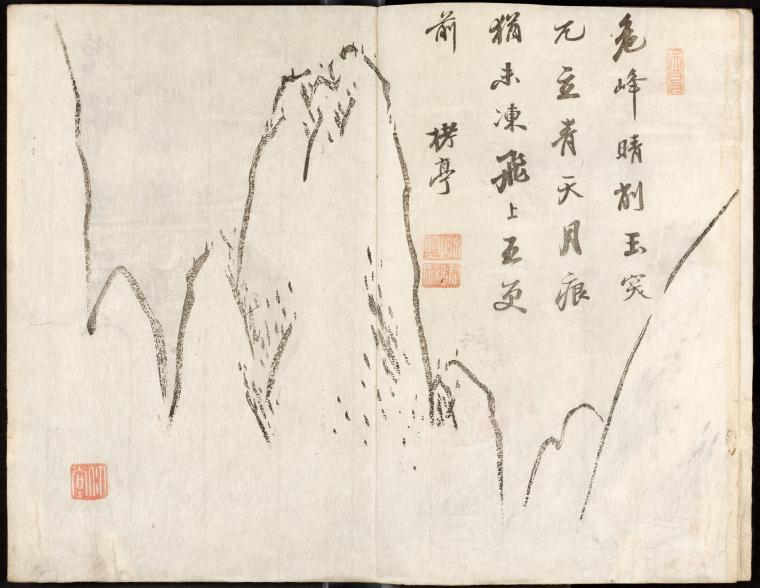 危峰晴削玉突
兀立青天月痕
猶未凍飛上五更
前
栲亭